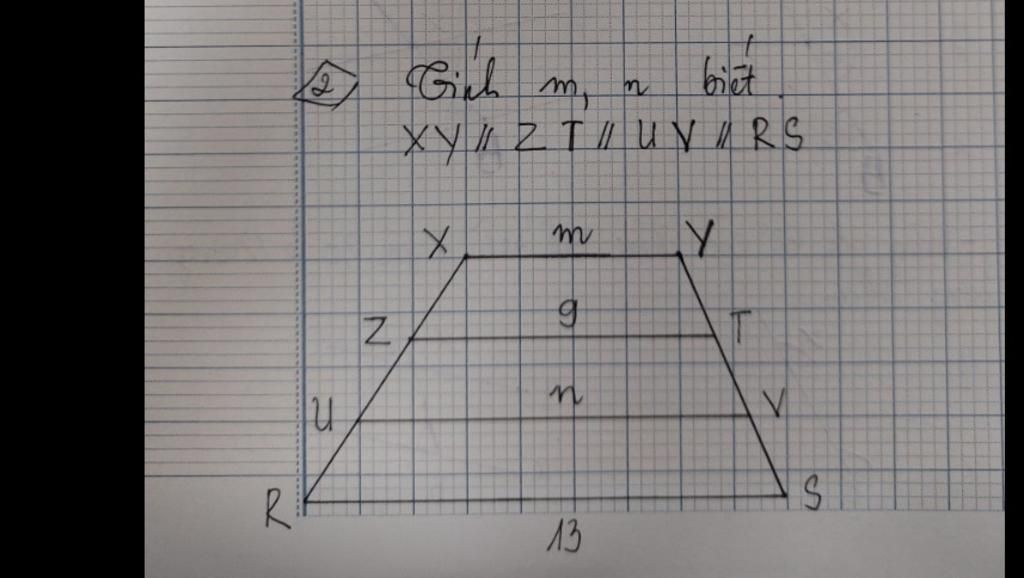 2 Tính m, n biết.
XY // ZT // UV // RS
X m Y
Z 9 T
U n V
R S
13